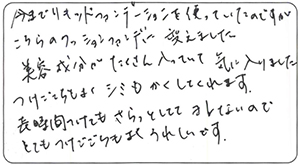 今までリキッドファンデーションを使っていたのですが
こちらのクッションファンデに変えました
美容成分がたくさん入っていて気に入りました
つけごこちもよくシミもかくしてくれます。
長時間つけてもさらっとしてヨレないので
とてもつけごごちもよくうれしいです。